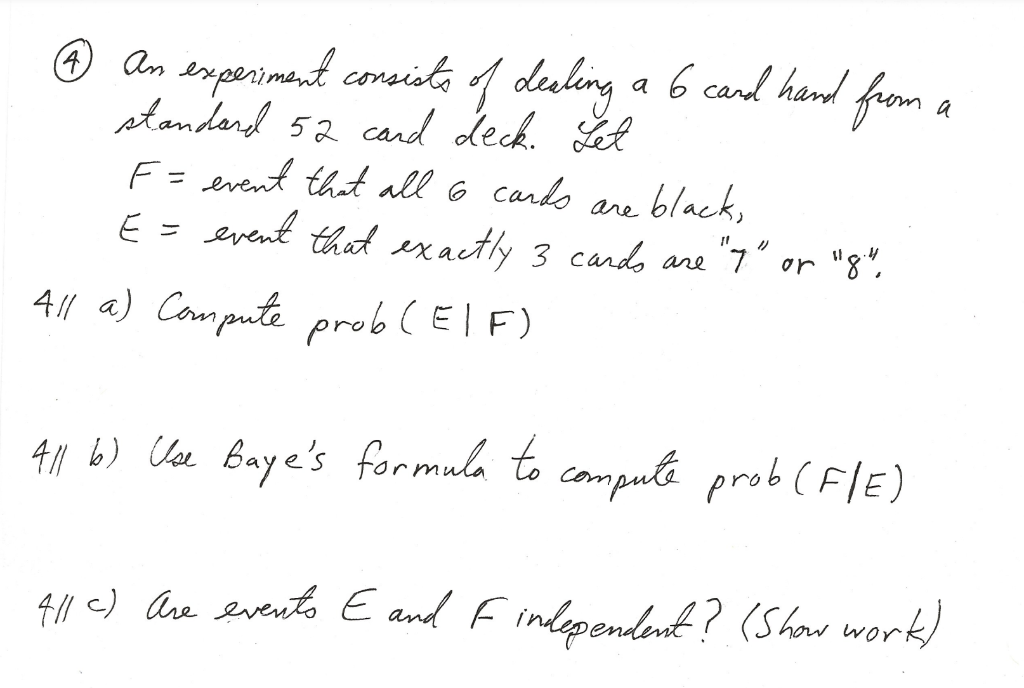 ④ An experiment consists of dealing a 6 card hand from a
standard 52 card deck. Let
F = event that all 6 cards are black,
E = event that exactly 3 cards are "7" or "8".
4// a) Compute prob (E | F)
4// b) Use Baye's formula to compute prob (F/E)
4// c) Are events E and F independent? (Show work)